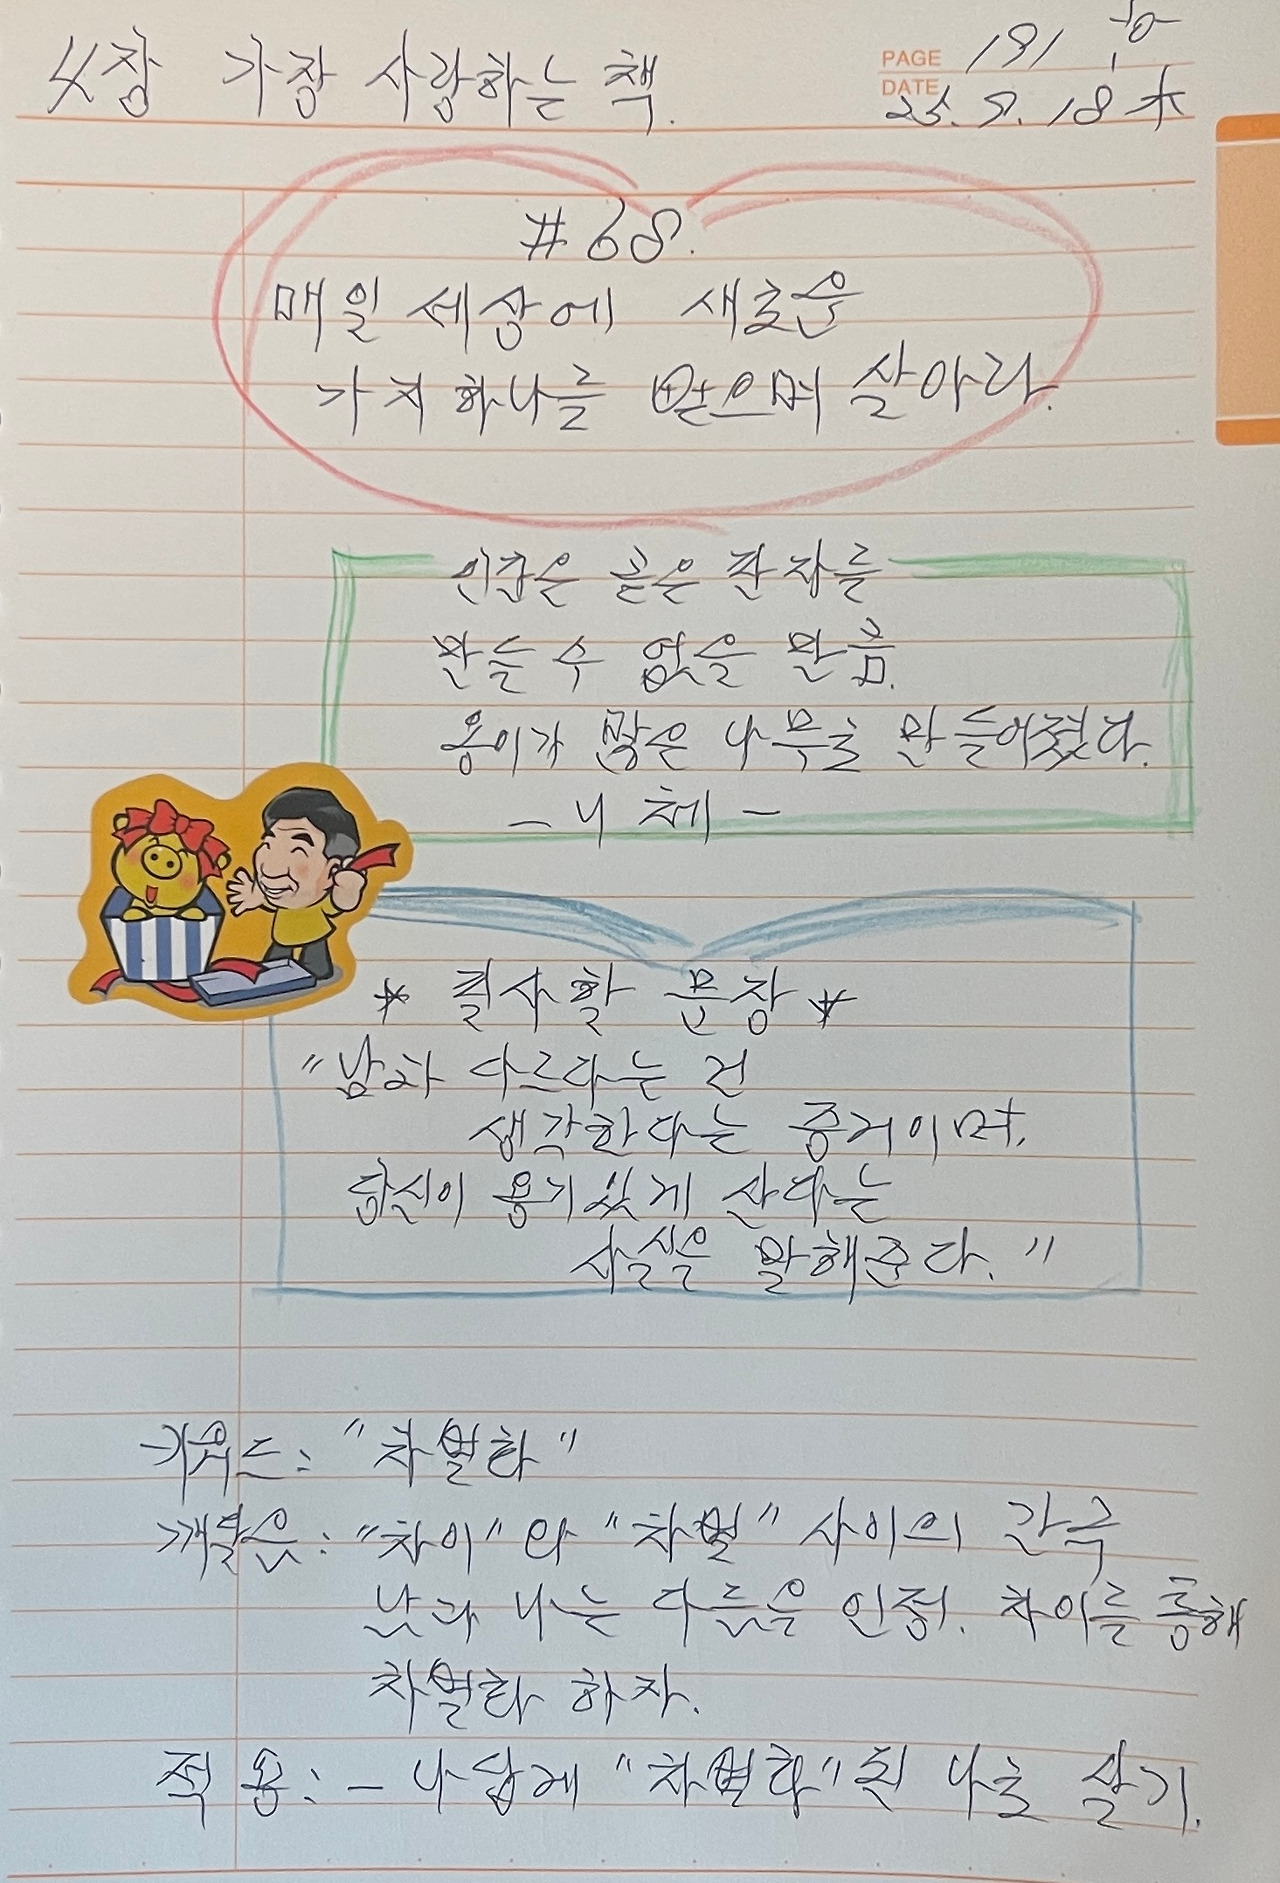 4장 가장 사랑하는 책.
PAGE 191
DATE 25. 9. 18 木
#68.
매일 세상에 새로운
가치 하나를 받으며 살아라.
인간은 곧은 판자를
만들 수 없을 만큼
옹이가 많은 나무로 만들어졌다.
- 니체 -
* 필사할 문장 *
"남과 다르다는 건
생각한다는 증거이며,
당신이 용기있게 산다는
사실을 말해준다."
키워드: "차별화"
깨달음: "차이"와 "차별" 사이의 간극
남과 나는 다름을 인정. 차이를 통해
차별화 하자.
적용: - 나답게 "차별화"된 나로 살기.